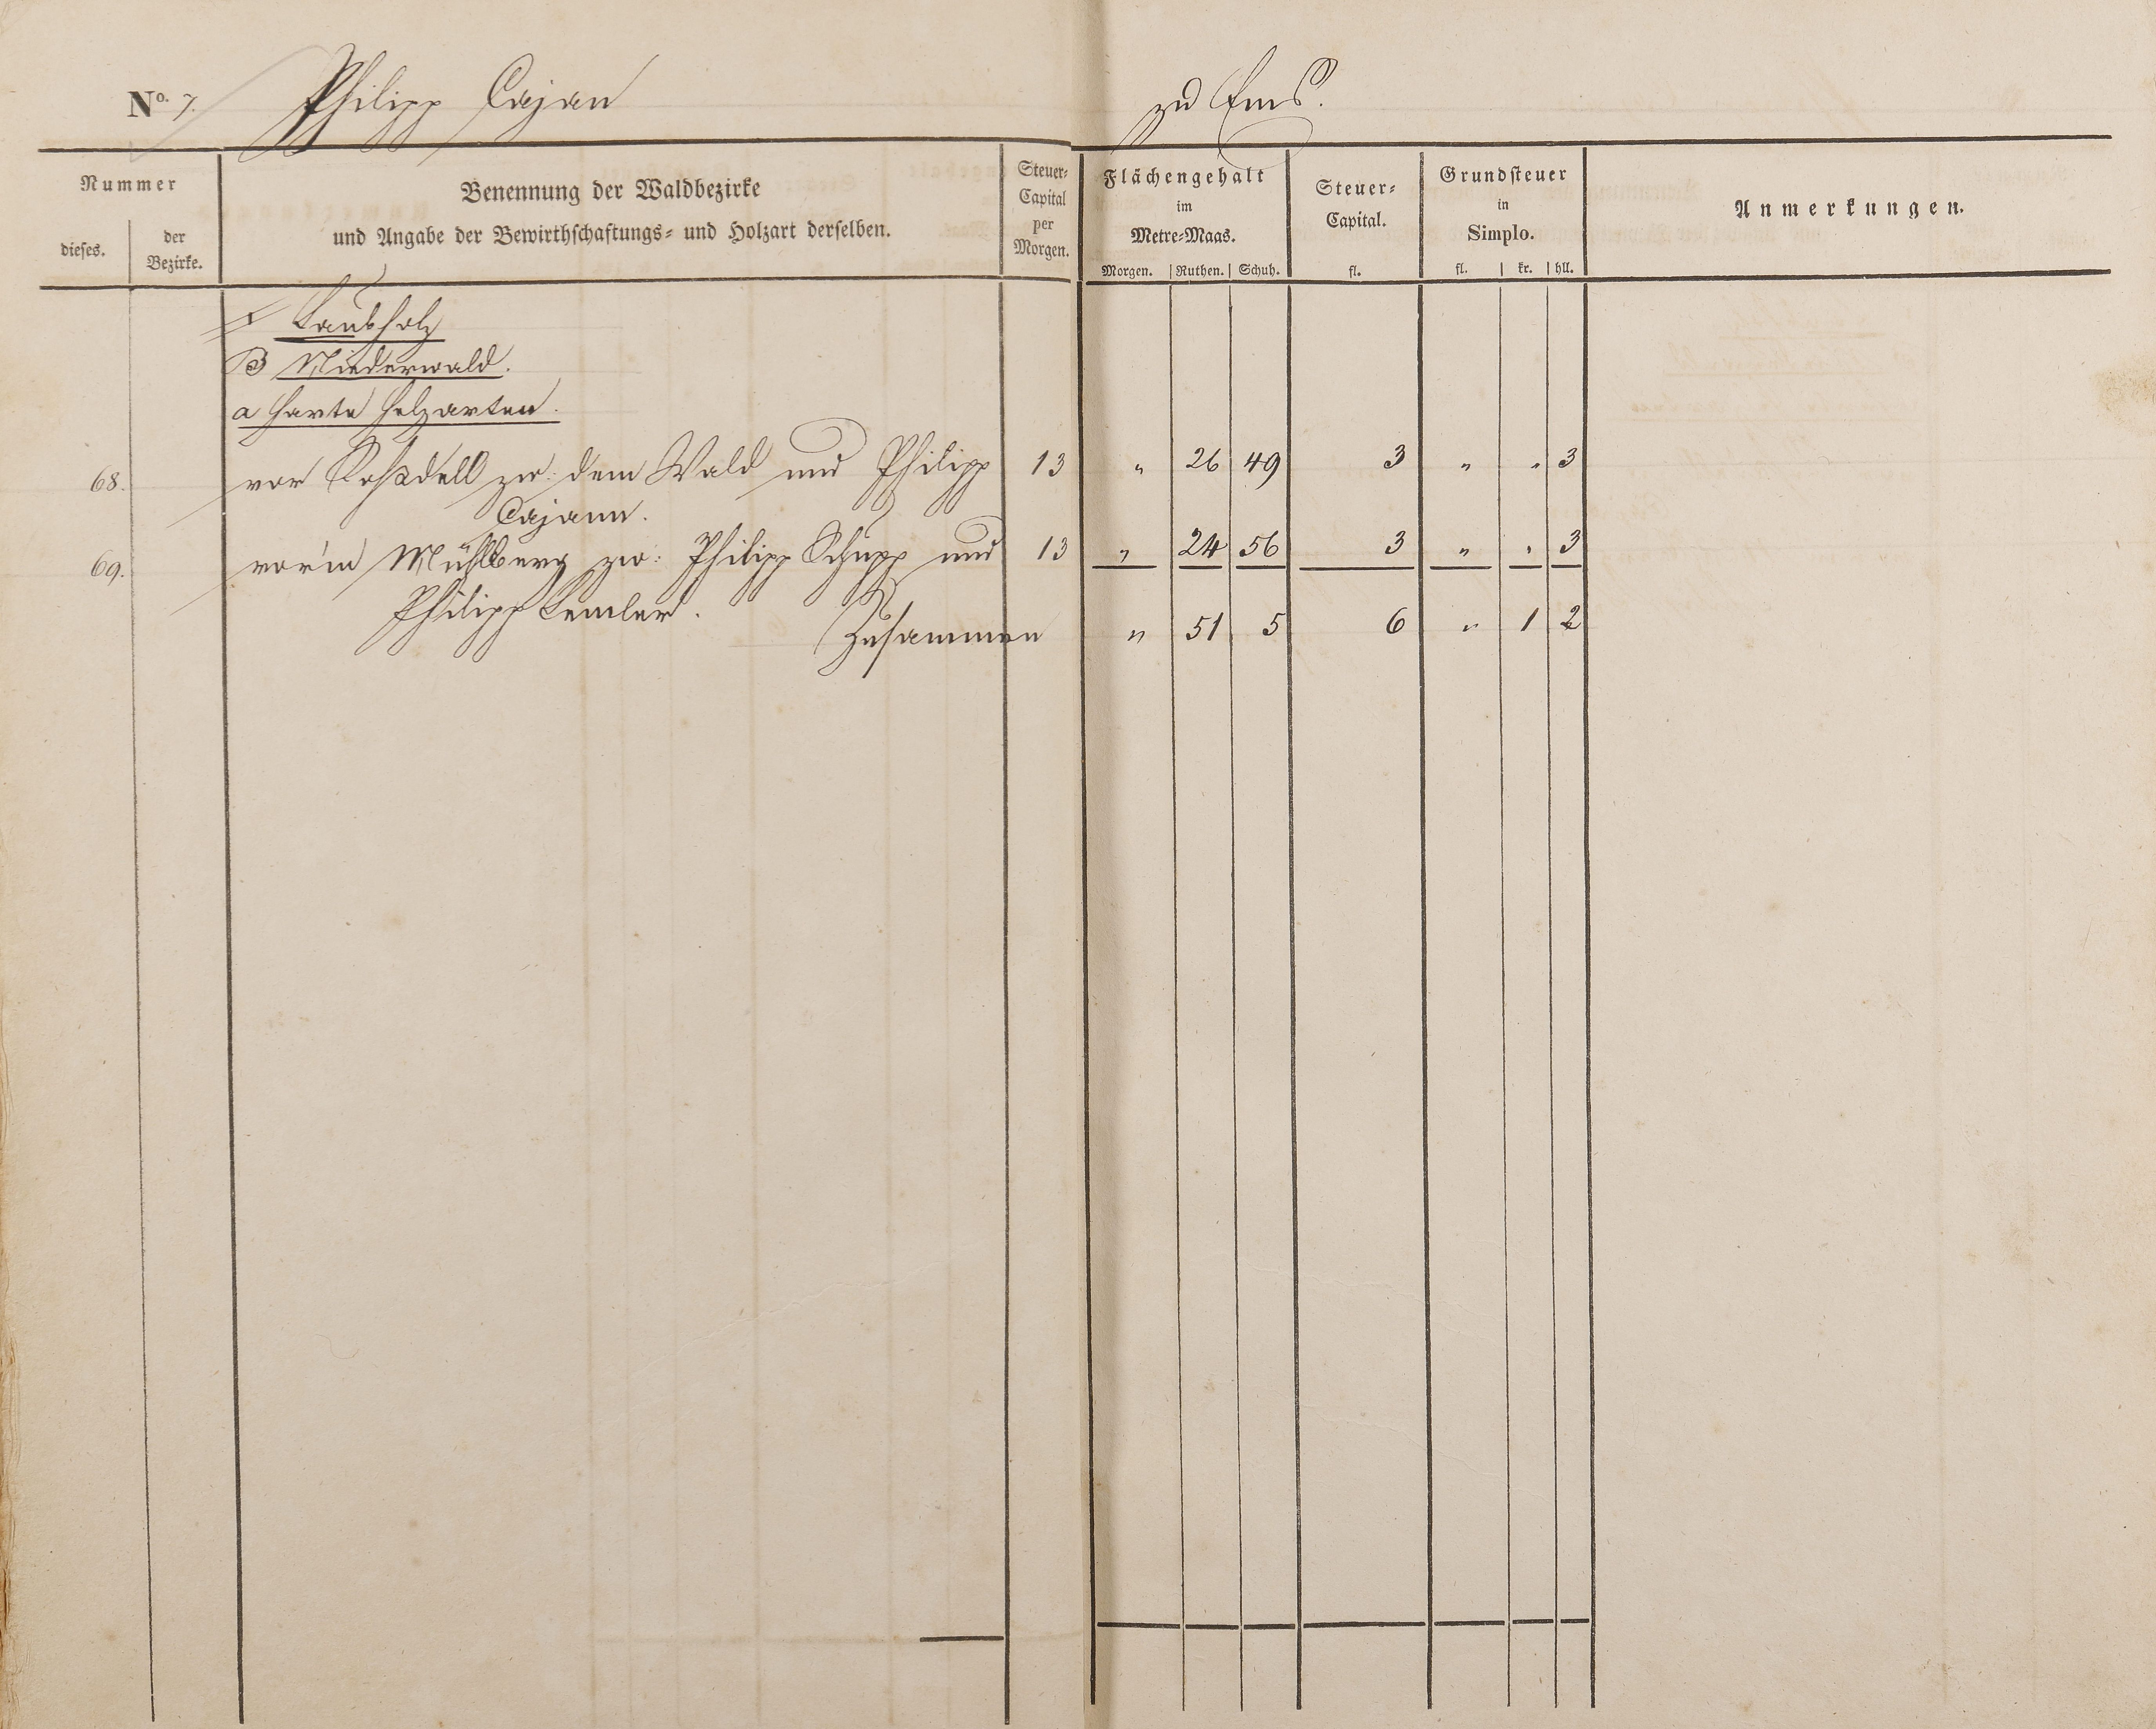 No. 7. Philipp Cajan zu Ems.
Nummer
dieses.
der Bezirke.
Benennung der Waldbezirke
und Angabe der Bewirthschaftungs- und Holzart derselben.
Steuer-
Capital
per
Morgen.
Flächengehalt
im
Metre-Maas.
Morgen. Ruthen. Schuh.
Steuer-
Capital.
fl.
Grundsteuer
in
Simplo.
fl. kr. hll.
Anmerkungen.
I Laubholz
B Niederwald.
a harte Holzarten.
68. vor Roßdell zw: dem Wald und Philipp 13 " 26 49 3 " " 3
Cajann.
69. vor'm Mühlberg zw: Philipp Schupp und 13 " 24 56 3 " " 3
Philipp Lemler.
Zusammen " 51 5 6 " 1 2